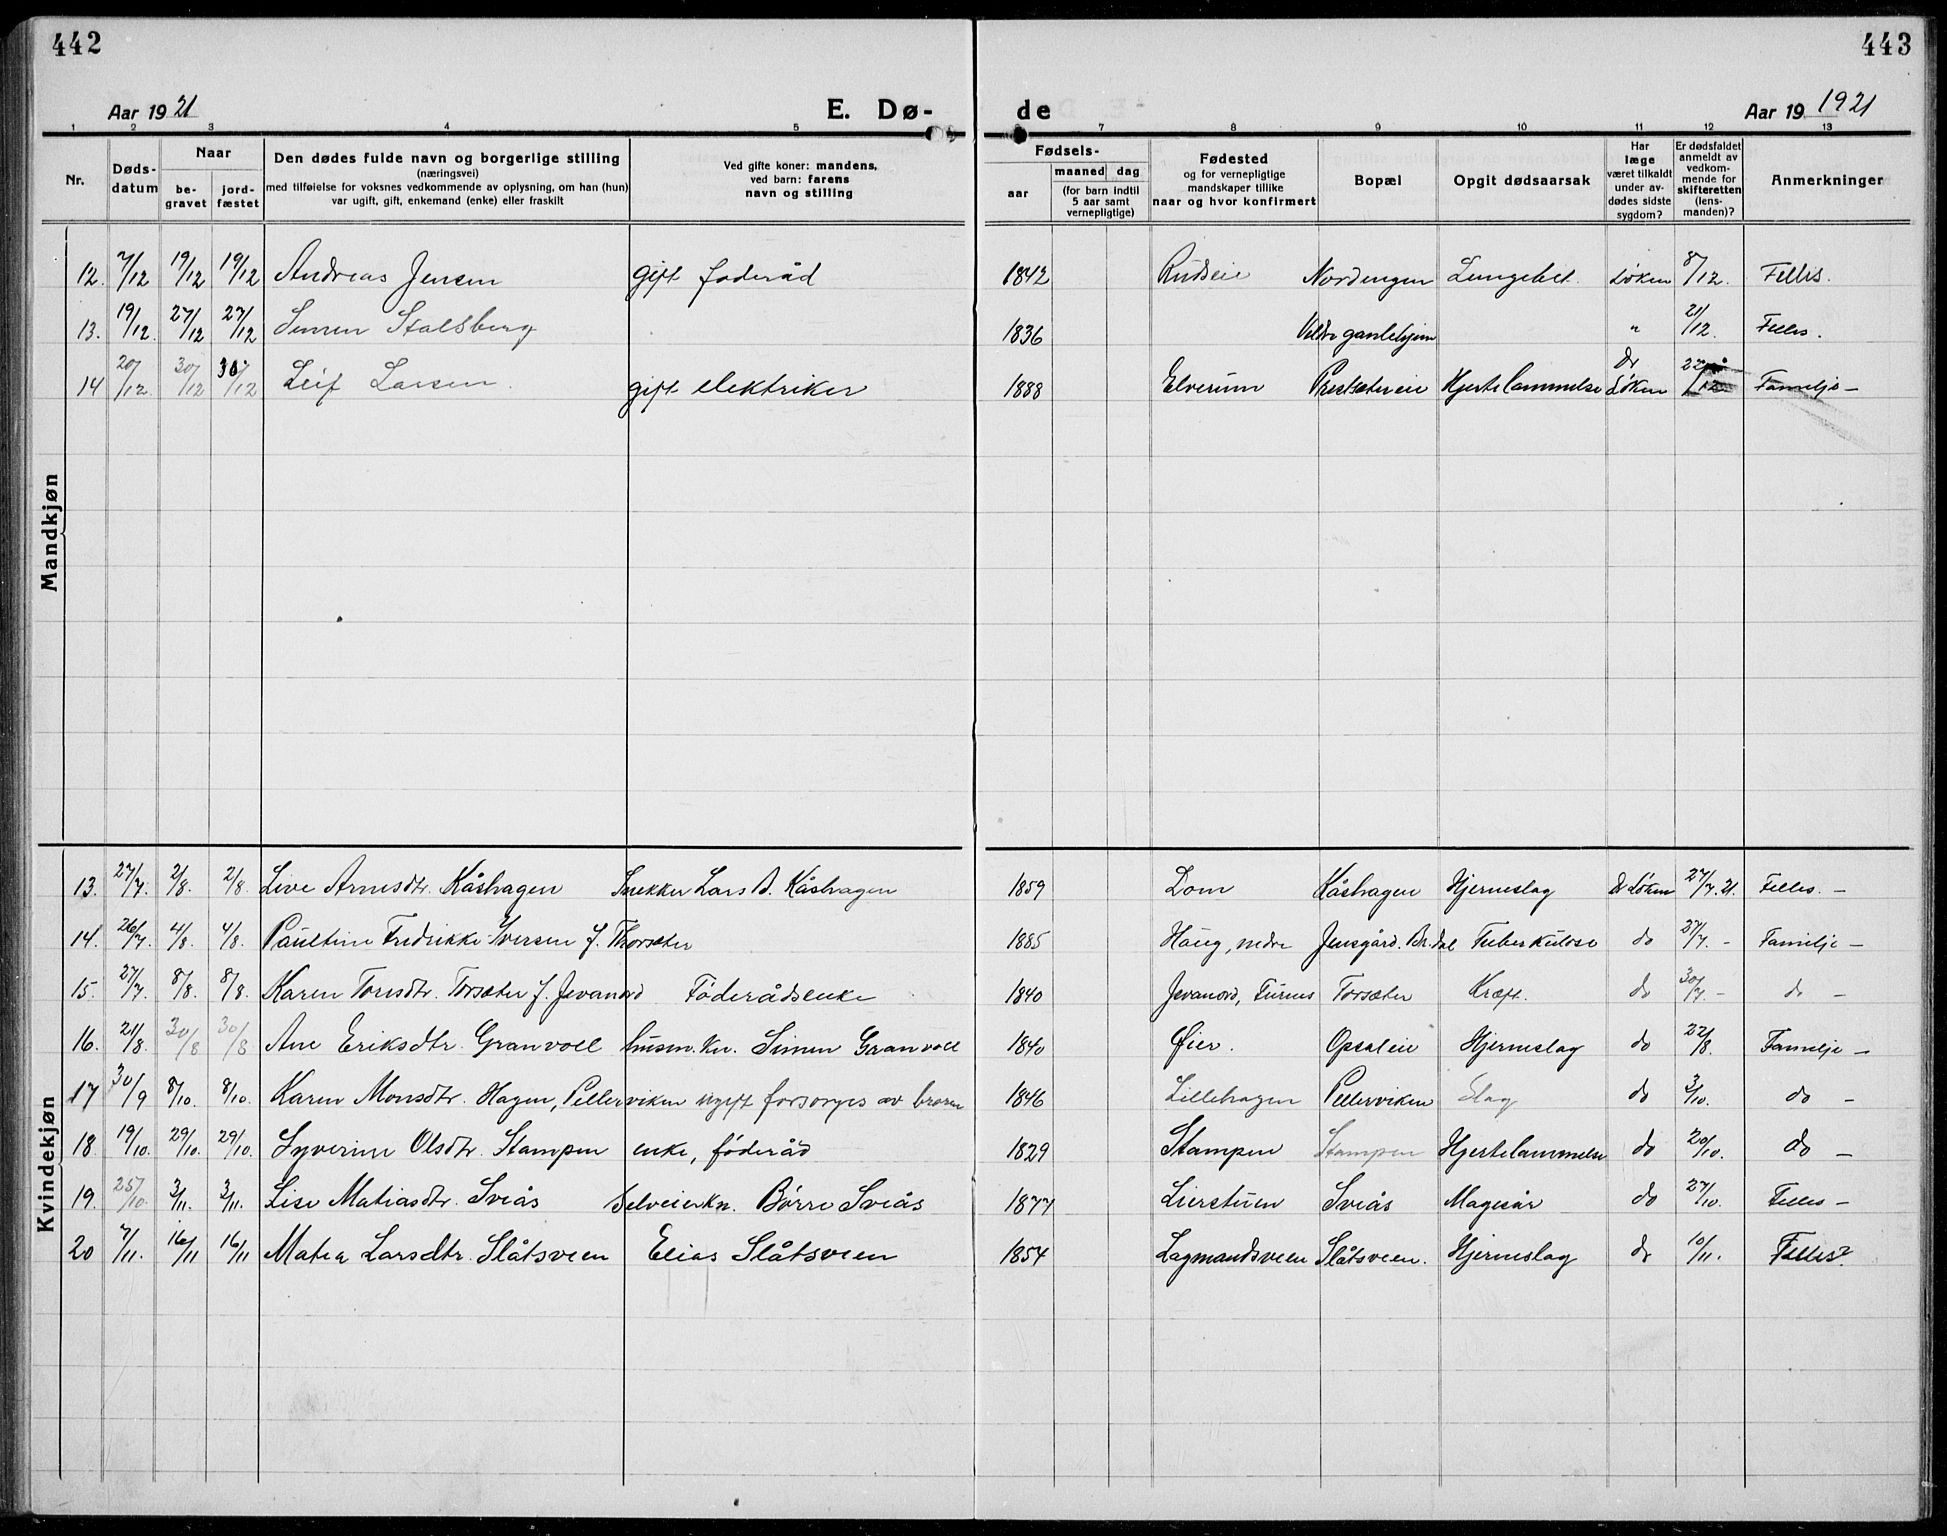 442
443
Aar 1921
E. Dø-
de
Aar 19 1921
1 2 3 4 5 6 7 8 9 10 11 12 13
Nr.
Døds-
datum
Naar
be-
gravet
jord-
fæstet
Den dødes fulde navn og borgerlige stilling
(næringsvei)
med tilføielse for voksnes vedkommende av oplysning, om han (hun)
var ugift, gift, enkemand (enke) eller fraskilt
Ved gifte koner: mandens,
ved barn: farens
navn og stilling
Fødsels-
aar
maaned dag
(for barn indtil
5 aar samt
vernepligtige)
Fødested
og for vernepligtige
mandskaper tillike
naar og hvor konfirmert
Bopæl
Opgit dødsaarsak
Har
læge
været tilkaldt
under av-
dødes sidste
sygdom?
Er dødsfaldet
anmeldt av
vedkom-
mende for
skifteretten
(lens-
manden)?
Anmerkninger
Mandkjøn
12. 7/12 19/12 19/12 Andreas Jensen gift føderåd 1842 Rudseie Nordengen Lungebet. Løken 8/12. Felles.
13. 19/12. 27/12 27/12 Simen Stalsberg 1836 Veldre gamlehjem " 21/12. Felles.
14 20/12. 30/12 30/12 Leif Larsen. gift elektriker 1888 Elverum Prestseterseie Hjertelammelse Dr Løken 22/12 Familje —
Kvindekjøn
13. 27/7. 2/8. 2/8. Live Arnesdtr. Kåshagen Snekker Lars A. Kåshagen 1859 Lom Kåshagen Hjerneslag Dr Løken 27/7.21. Felles. —
14. 26/7. 4/8. 4/8. Paulline Fredrikke Iversen f. Thorsæter 1885 Haug, nedre Jensgård. Br.dal Tuberkulose do 27/7. - Familje —
15. 27/7. 8/8. 8/8. Karen Toresdtr. Torsæter f. Jevanord Føderådsenke 1840 Jevanord, Furnes Torsæter Kræft. do 30/7. - do —
16. 21/8. 30/8 30/8 Ane Eriksdtr. Granvoll husm. kn. Simen Granvoll 1840 Øier. Opsaleie Hjerneslag do 22/8. Familje —
17 30/9 8/10. 8/10. Karen Monsdtr. Hagen, Pellerviken ugift forsørges av broren 1846 Lillehagen Pellerviken Slag do 3/10. do —
18 19/10. 29/10. 29/10. Syverine Olsdtr. Stampen enke, føderåd 1829 Stampen Stampen Hjertelammelse do 20/10. do —
19. 25/10. 3/11. 3/11. Lise Matiasdtr. Sviås Selveierkn. Børre Sviås 1877 Lierstuen Sviås Magesår do 27/10. Felles —
20 7/11. 16/11 16/11 Matea Larsdtr. Slåtsveen Elias Slåtsveen 1854 Lagmandsveen Slåtsveen. Hjerneslag do 10/11. Felles?